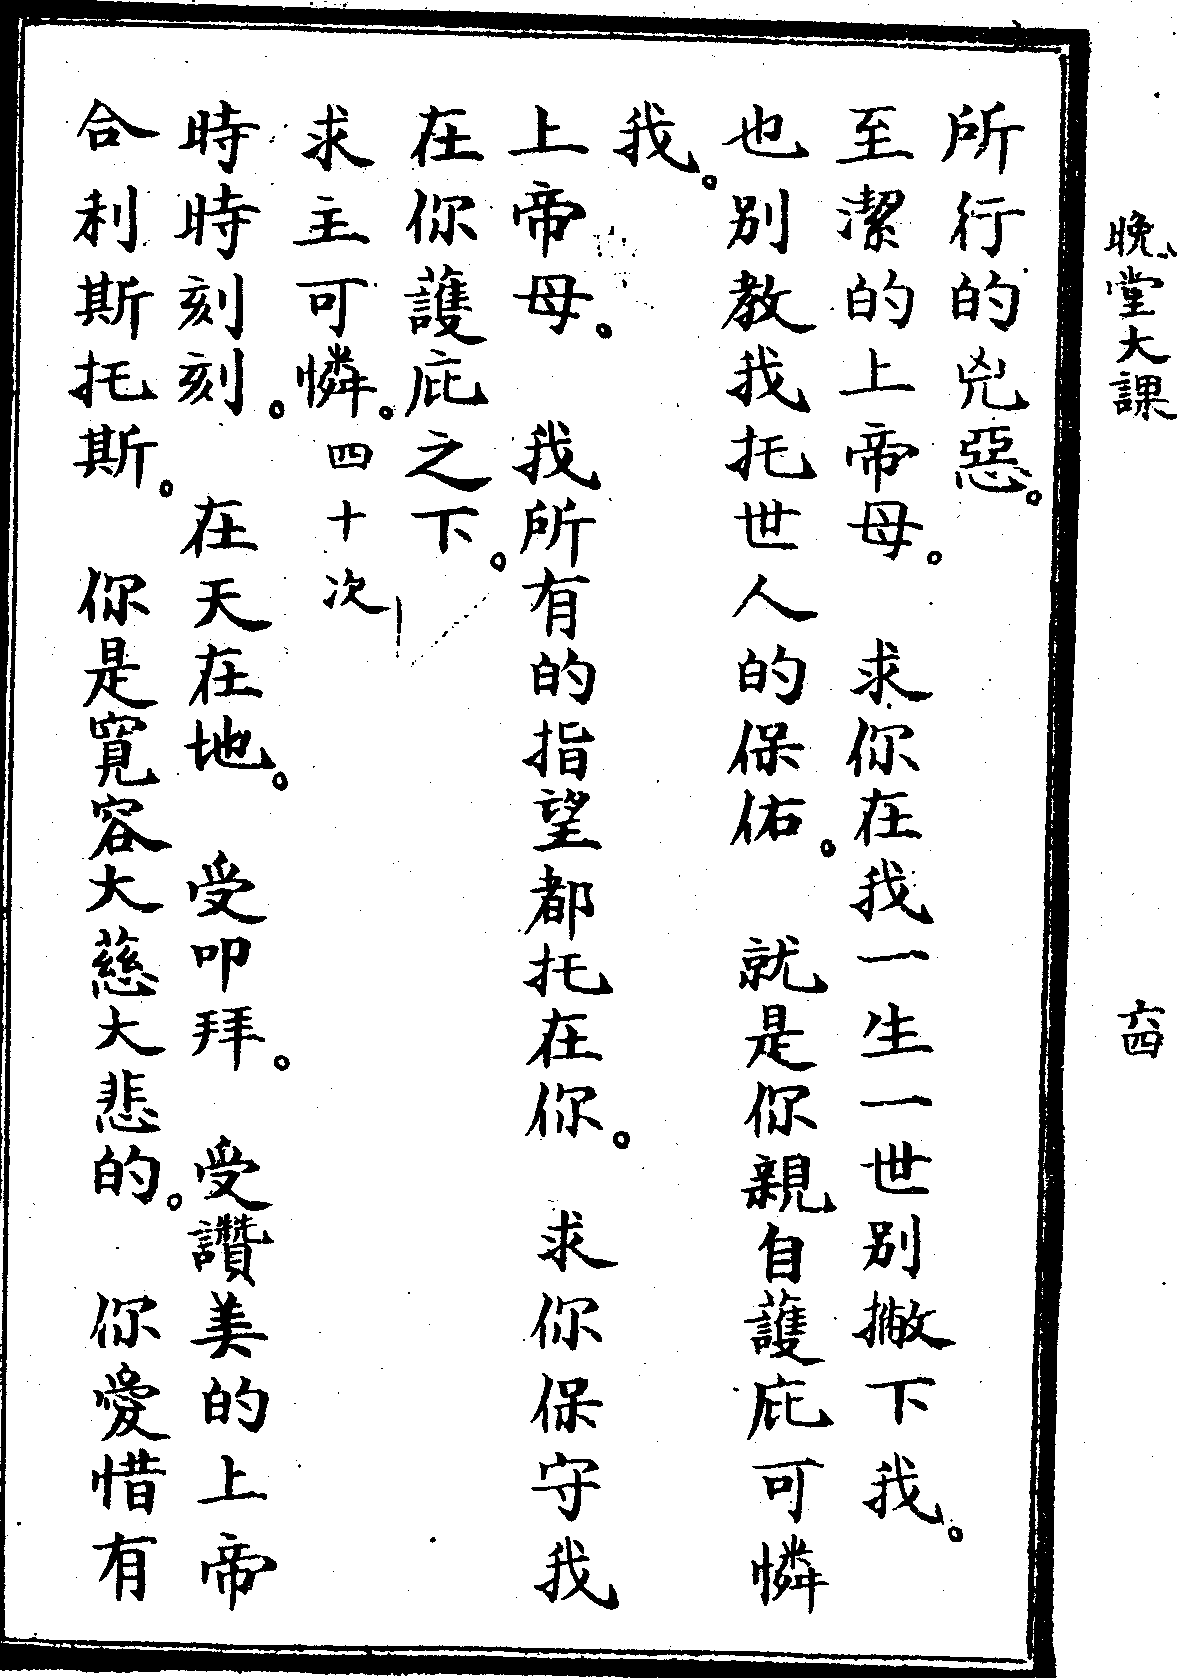 晚堂大課
六四
所行的兇惡。
至潔的上帝母。求你在我一生一世別撇下我。
也別教我托世人的保佑。就是你親自護庇可憐
我。
上帝母。我所有的指望都托在你。求你保守我
在你護庇之下。
求主可憐。四十次
時時刻刻。在天在地。受叩拜。受讚美的上帝
合利斯托斯。你是寬容大慈大悲的。你愛惜有